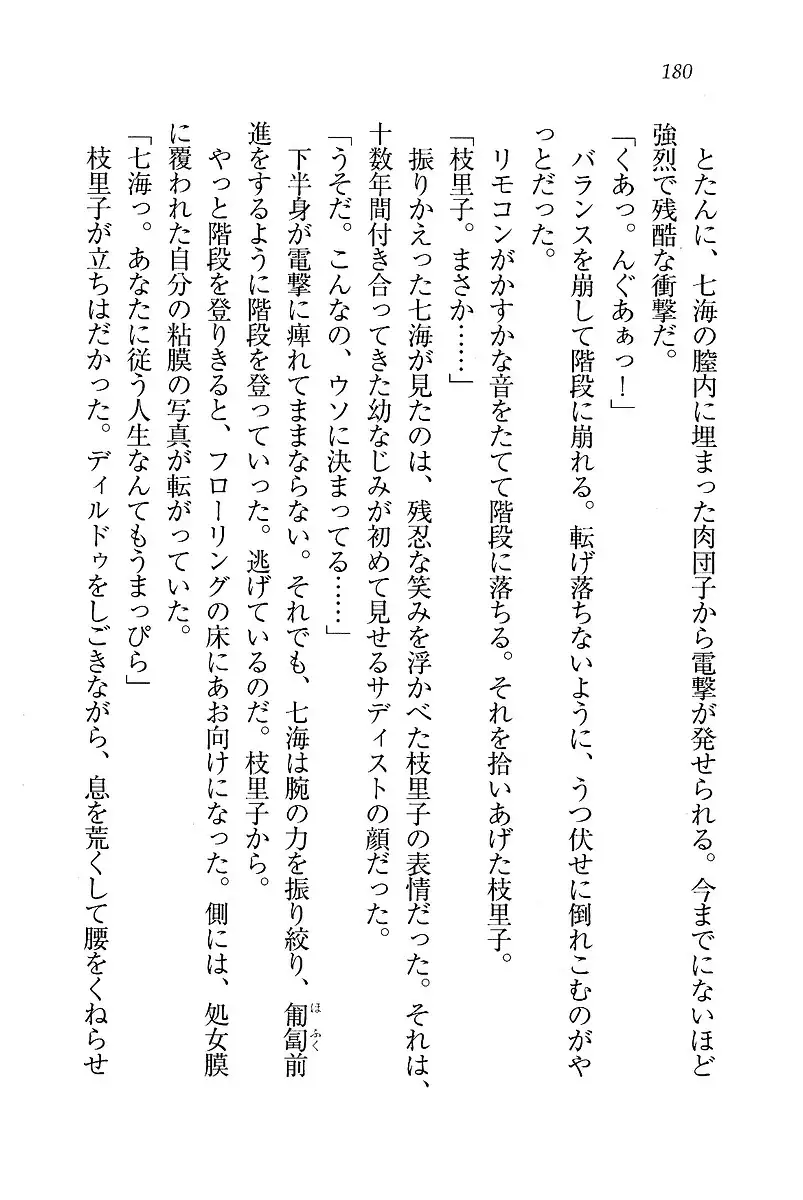 180
とたんに、七海の膣内に埋まった肉団子から電撃が発せられる。今までにないほど
強烈で残酷な衝撃だ。
「くあっ。んぐあぁっ！」
バランスを崩して階段に崩れる。転げ落ちないように、うつ伏せに倒れこむのがや
っとだった。
リモコンがかすかな音をたてて階段に落ちる。それを拾いあげた枝里子。
「枝里子。まさか……」
振りかえった七海が見たのは、残忍な笑みを浮かべた枝里子の表情だった。それは、
十数年間付き合ってきた幼なじみが初めて見せるサディストの顔だった。
「うそだ。こんなの、ウソに決まってる……」
下半身が電撃に痺れてままならない。それでも、七海は腕の力を振り絞り、匍匐前
進をするように階段を登っていった。逃げているのだ。枝里子から。
やっと階段を登りきると、フローリングの床にあお向けになった。側には、処女膜
に覆われた自分の粘膜の写真が転がっていた。
「七海っ。あなたに従う人生なんてもうまっぴら」
枝里子が立ちはだかった。ディルドゥをしごきながら、息を荒くして腰をくねらせ